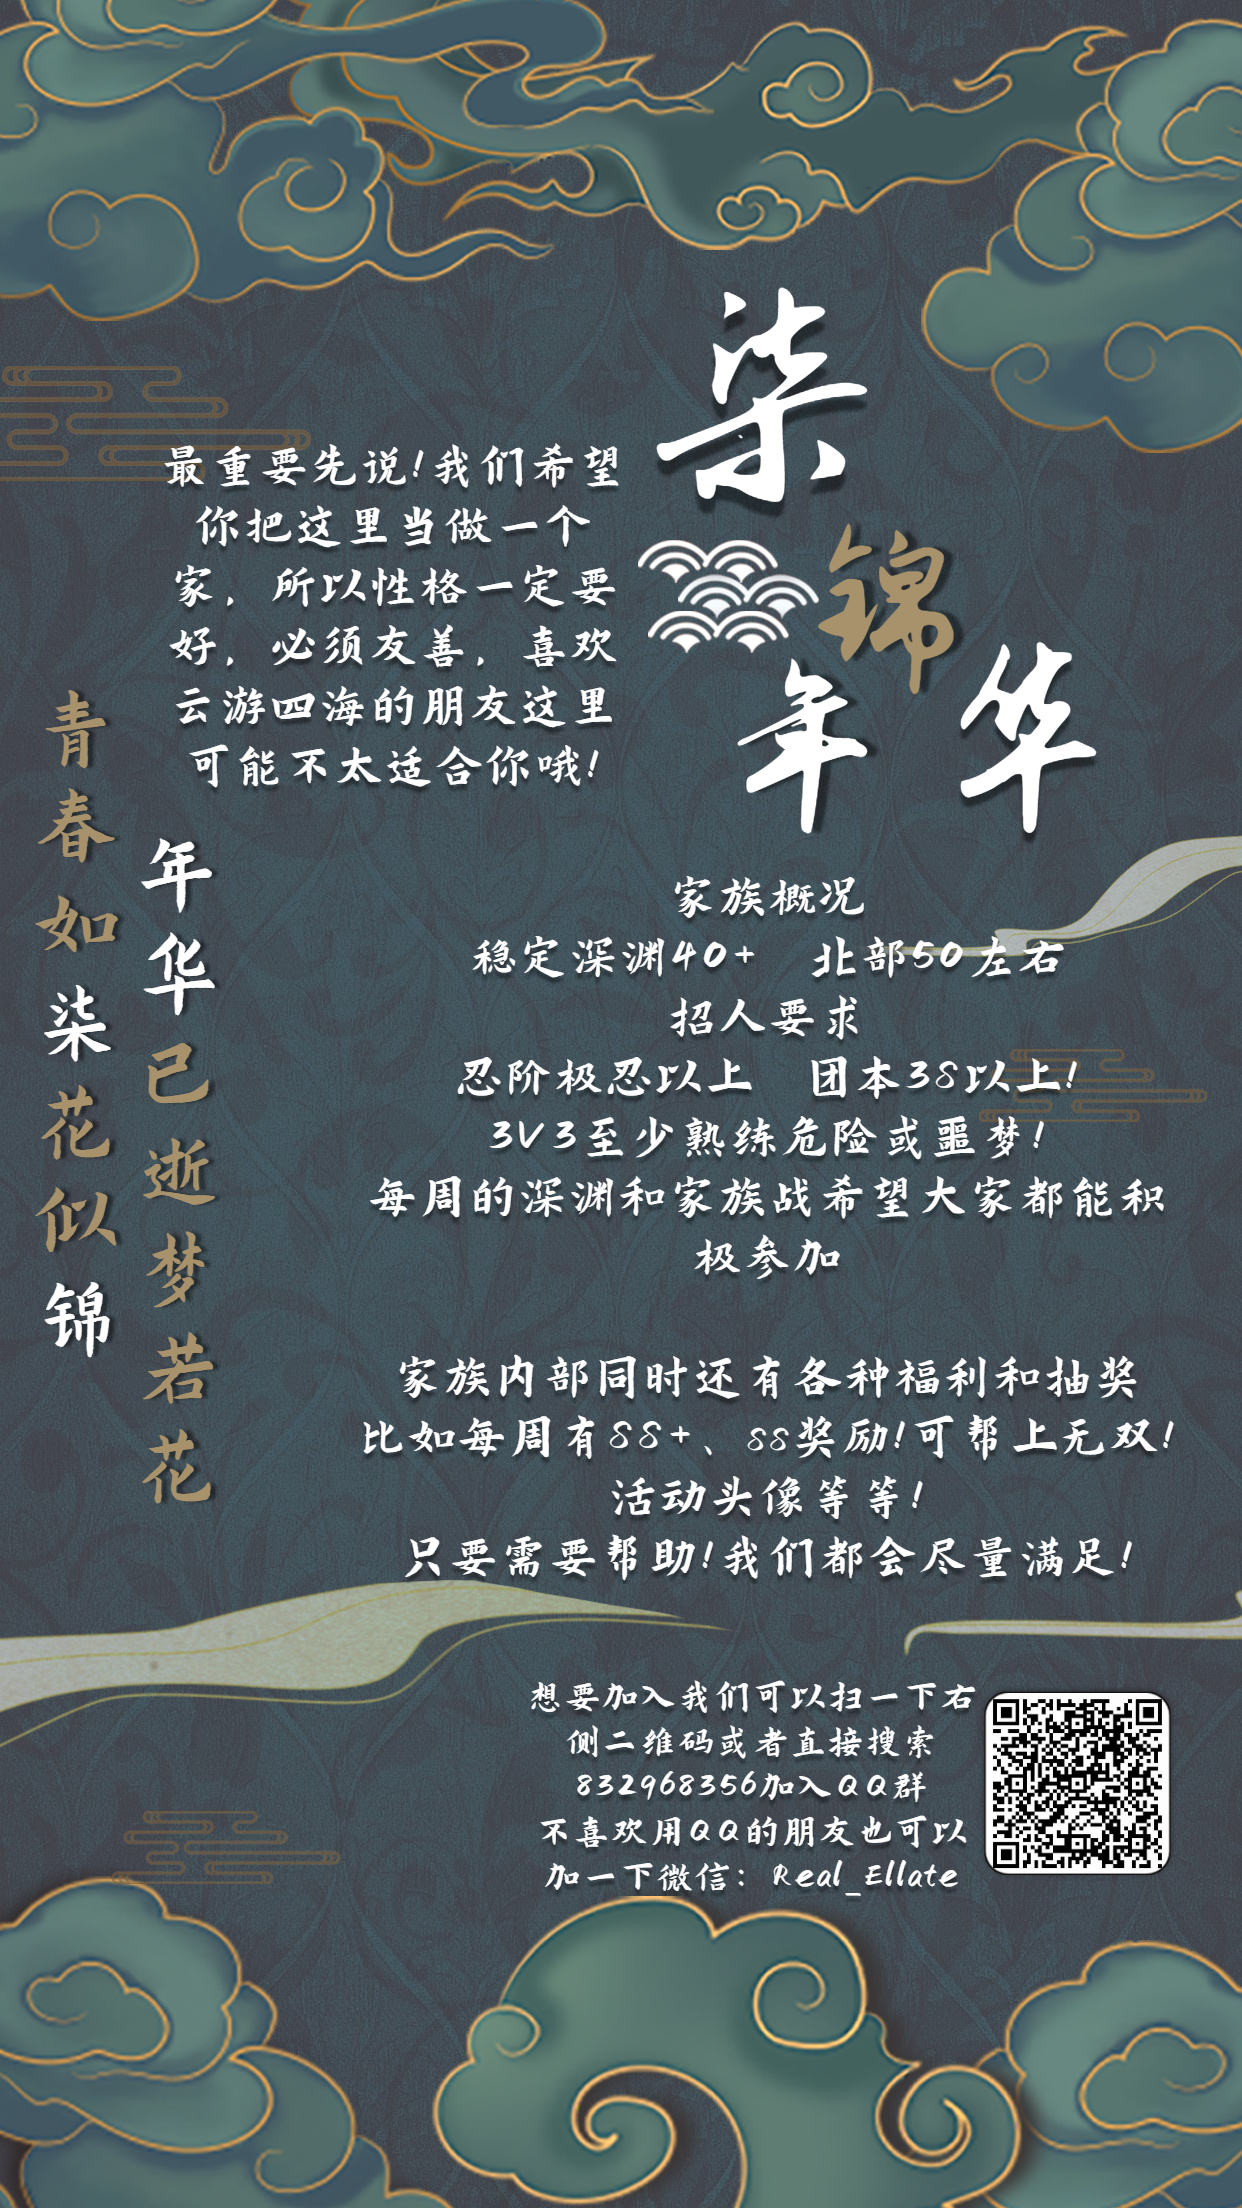 柒
锦
年 华
最重要先说!我们希望
你把这里当做一个
家，所以性格一定要
好，必须友善，喜欢
云游四海的朋友这里
可能不太适合你哦!
青春如柒花似锦
年华已逝梦若花
家族概况
稳定深渊40+ 北部50左右
招人要求
忍阶极忍以上 团本38以上!
3V3至少熟练危险或噩梦!
每周的深渊和家族战希望大家都能积
极参加
家族内部同时还有各种福利和抽奖
比如每周有SS+、ss奖励!可帮上无双!
活动头像等等!
只要需要帮助!我们都会尽量满足!
想要加入我们可以扫一下右
侧二维码或者直接搜索
832968356加入QQ群
不喜欢用QQ的朋友也可以
加一下微信：Real_Ellate